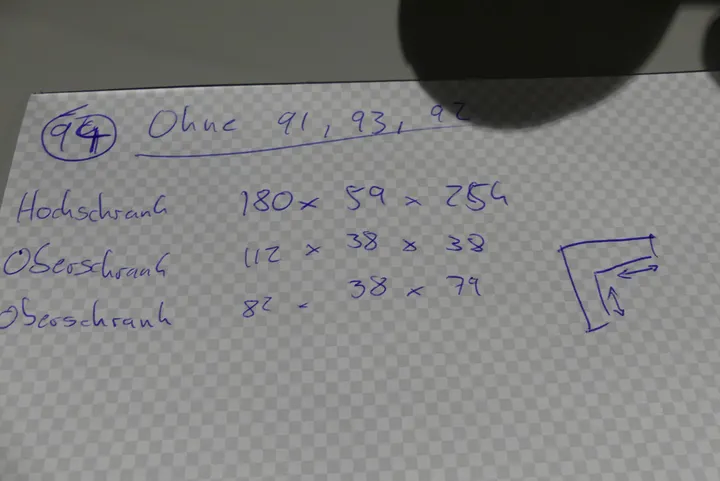 94 Ohne 91, 93, 92
Hochschrank 180 x 59 x 254
Oberschrank 112 x 38 x 38
Oberschrank 82 x 38 x 79